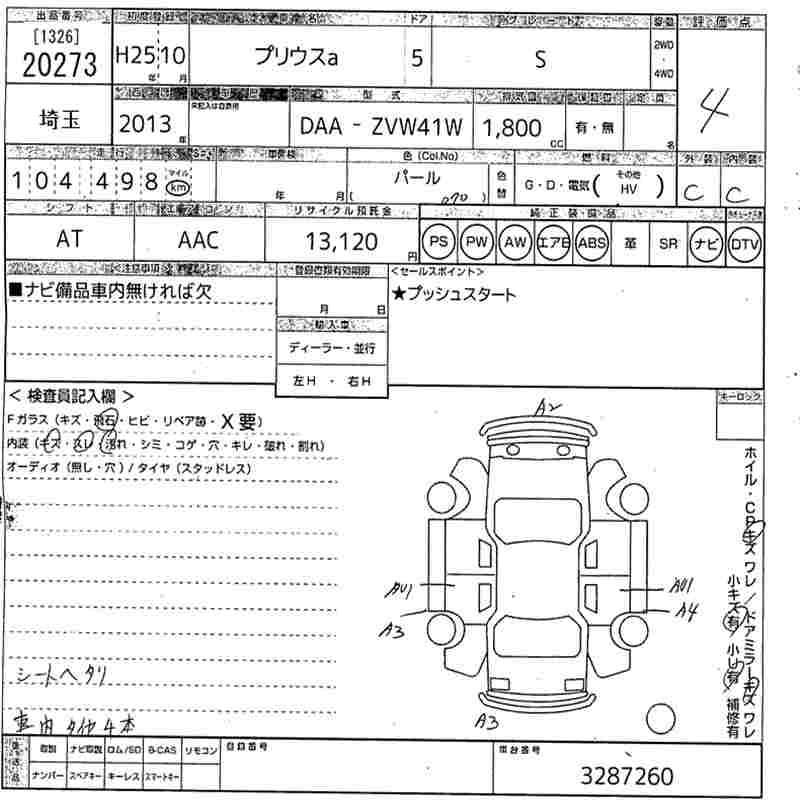 出品番号 初度登録 車名 ドア グレード 駆動 評価点
[1326]
20273 H25年 10月 プリウスa 5 S 2WD・4WD 4
型式 排気量 定員
埼玉 2013年 DAA - ZVW41W 1,800CC 有・無 名
走行 車検 色(Col.No) 燃料 外装 内装
104,498 マイル km 年 月 パール (070) 色替 G・D・電気(その他 HV) C C
シフト エアコン リサイクル預託金 純正装備品
AT AAC 13,120円 PS PW AW エアB ABS 革 SR ナビ DTV
<注意事項> 登録書類有効期限 <セールスポイント>
■ナビ備品車内無ければ欠 ★プッシュスタート
月 日
輸入車
ディーラー・並行
左H ・ 右H
<検査員記入欄> キーロック
Fガラス(キズ・飛石・ヒビ・リペア跡・X要)
内装(キズ・スレ・汚れ・シミ・コゲ・穴・キレ・破れ・割れ)
オーディオ(無し・穴)/タイヤ(スタッドレス)
A2
AU1 AU1
A3 A4
A3
ホイル・CPキズ ワレ/ドアミラーキズ ワレ
小キズ有 小U有 補修有
シートヘタリ
車内タイヤ4本
後送品 取説 ナビ取説 ロム/SD B-CAS リモコン 登録番号 車台番号
ナンバー スペアキー キーレス スマートキー 3287260